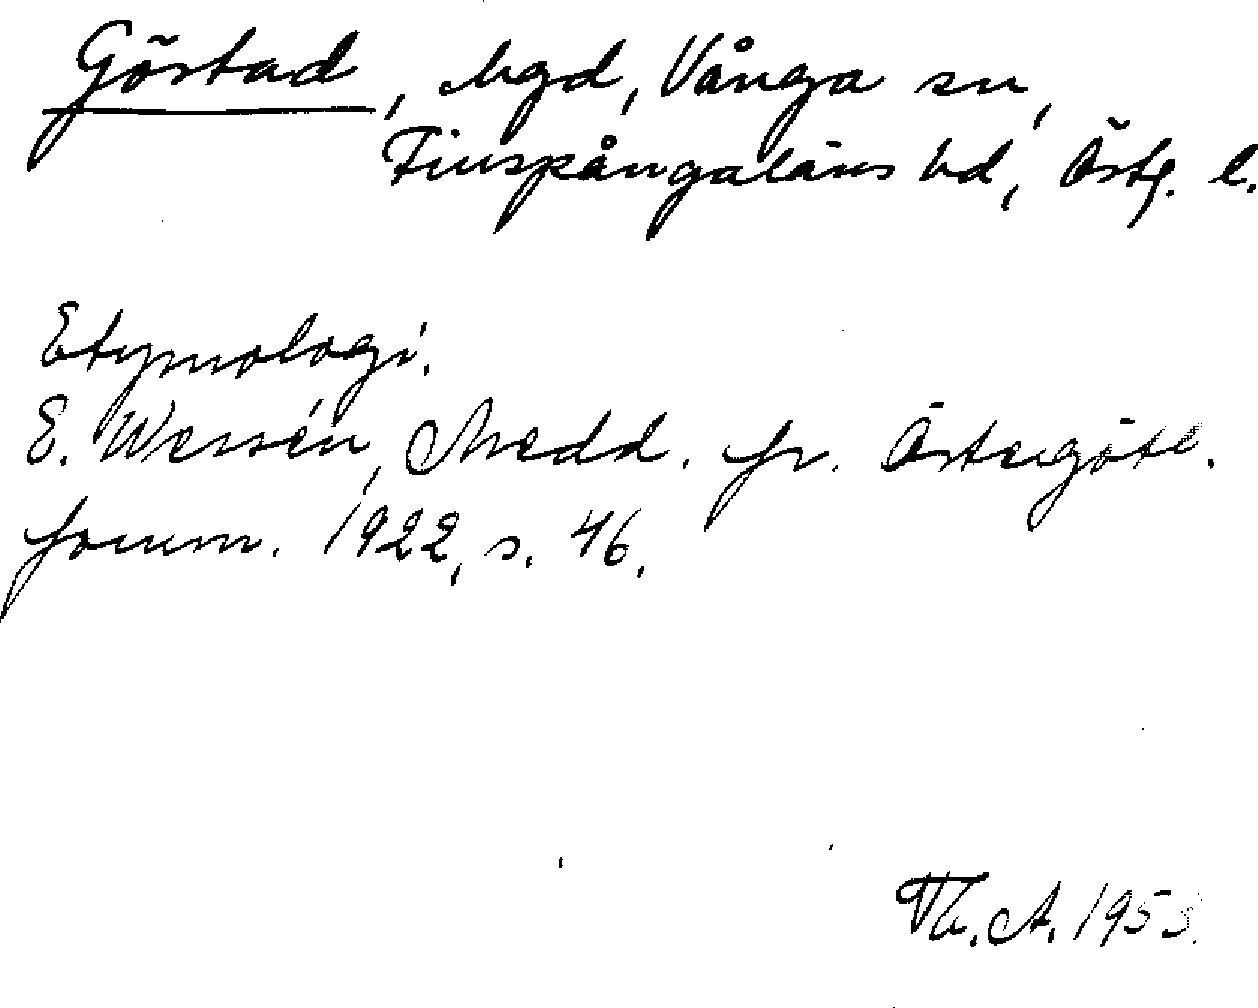 Göstad, hgd, Vånga sn,
Finspångaläns hd, Östg. l.
Etymologi.
E. Wessén, Medd. fr. Östergötl.
fornm. 1922, s. 46.
Th. A. 1953.